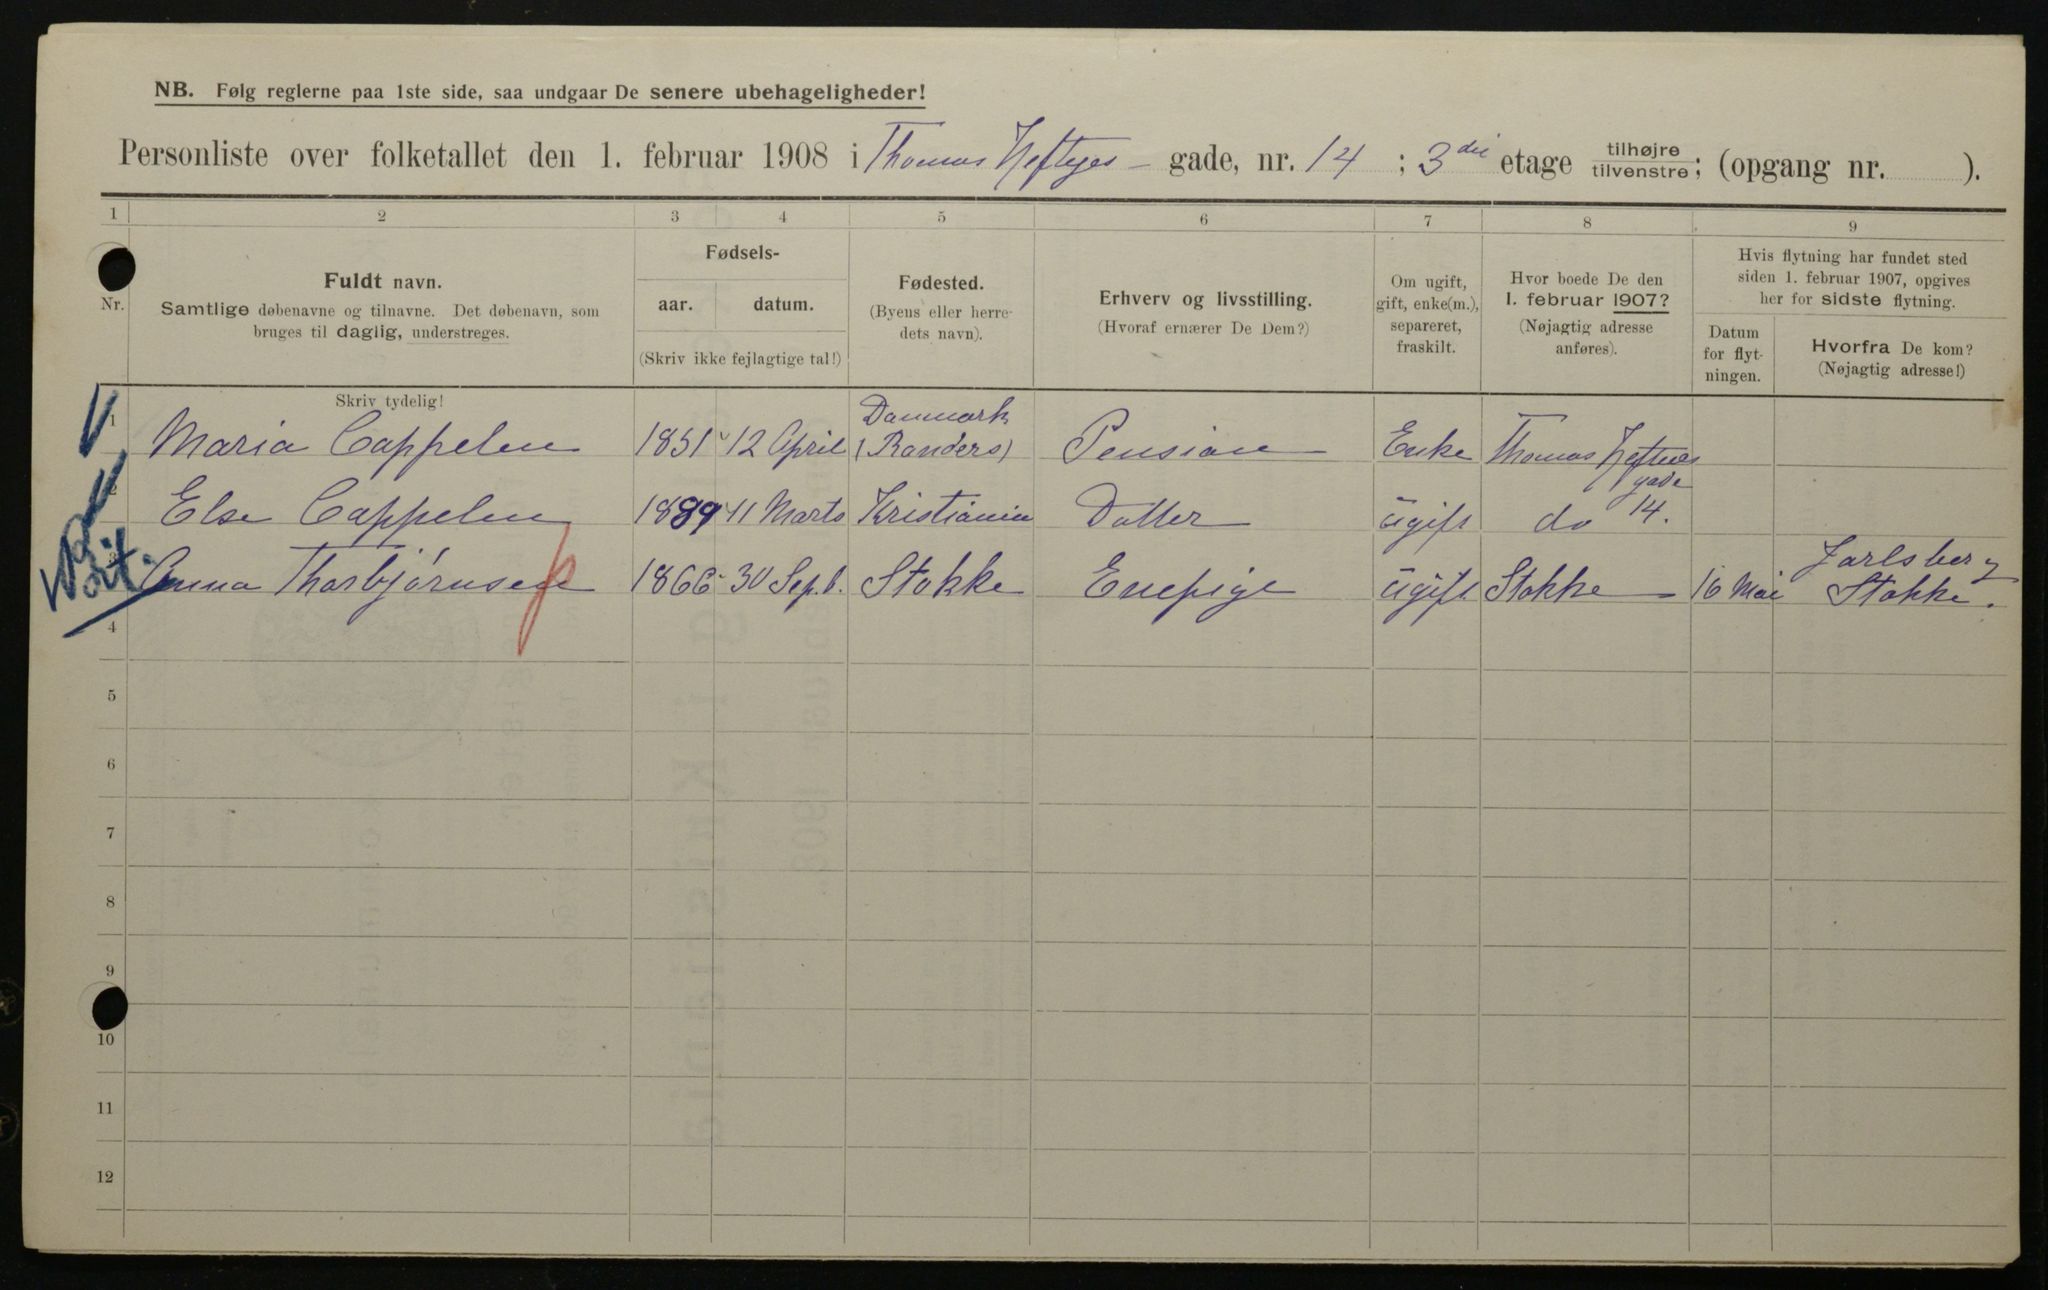 NB. Følg reglerne paa 1ste side, saa undgaar De senere ubehageligheder!
Personliste over folketallet den 1. februar 1908 i Thomas Heftyes - gade, nr. 14 ; 3die etage tilhøjre tilvenstre; (opgang nr. ).
1 2 3 4 5 6 7 8 9
Nr.
Fuldt navn.
Samtlige døbenavne og tilnavne. Det døbenavn, som
bruges til daglig, understreges.
Fødsels-
aar. datum.
(Skriv ikke fejlagtige tal!)
Fødested.
(Byens eller herre-
dets navn).
Erhverv og livsstilling.
(Hvoraf ernærer De Dem?)
Om ugift,
gift, enke(m.),
separeret,
fraskilt.
Hvor boede De den
1. februar 1907?
(Nøjagtig adresse
anføres).
Hvis flytning har fundet sted
siden 1. februar 1907, opgives
her for sidste flytning.
Datum
for flyt-
ningen.
Hvorfra De kom?
(Nøjagtig adresse!)
Skriv tydelig!
1 Maria Cappelen 1851 12 April Danmark (Randers) Pension Enke Thomas Heftyes gade 14.
2 Else Cappelen 1889 11 Marts Kristiania Datter ugift do
3 Anna Thorbjørnsen 1866 30 Sepb. Stokke Enepige ugift Stokke 16 Mai Jarlsberg Stokke.
4
5
6
7
8
9
10
11
12